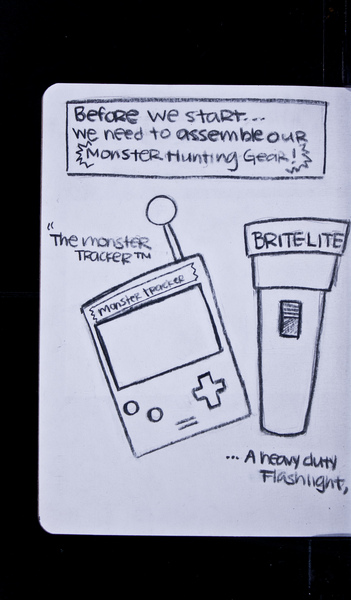 Before we start...
we need to assemble our
Monster Hunting Gear!
"The monster
Tracker™
monster tracker
BRITE-LITE
... A heavy duty
Flashlight,